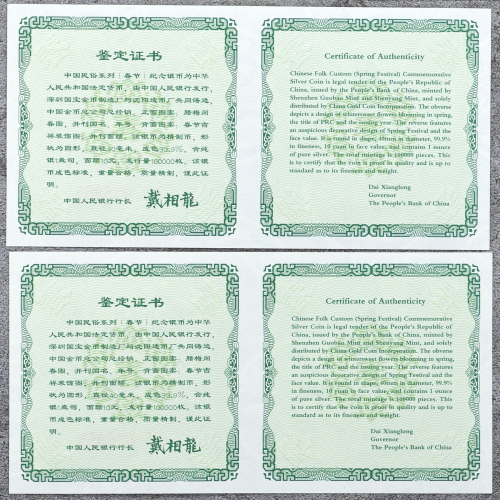 鉴定证书
中国民俗系列（春节）纪念银币为中华
人民共和国法定货币，由中国人民银行发行，
深圳国宝金币制造厂与沈阳造币厂共同铸造，
中国金币总公司总经销。正面图案：腊梅闹
春图，并刊国名、年号，背面图案：春节吉
祥装饰图，并刊面额，该银币为精制币，形
状为圆形，直径40毫米，成色99.9%，含纯
银1盎司，面额10元，发行量100000枚，该银
币成色标准，重量合格，质量精制，谨此证
明。
中国人民银行行长 戴相龍
Certificate of Authenticity
Chinese Folk Custom (Spring Festival) Commemorative
Silver Coin is legal tender of the People's Republic of
China, issued by the People's Bank of China, minted by
Shenzhen Guobao Mint and Shenyang Mint, and solely
distributed by China Gold Coin Incorporation. The obverse
depicts a design of winterstweet flowers blooming in spring,
the title of PRC and the issuing year. The reverse features
an auspicious decorative design of Spring Festival and the
face value. It is round in shape, 40mm in diameter, 99.9%
in fineness, 10 yuan in face value, and contains 1 ounce
of pure silver. The total mintage is 100000 pieces. This
is to certify that the coin is proof in quality and is up to
standard as to its fineness and weight.
Dai Xianglong
Governor
The People's Bank of China
鉴定证书
中国民俗系列（春节）纪念银币为中华
人民共和国法定货币，由中国人民银行发行，
深圳国宝金币制造厂与沈阳造币厂共同铸造，
中国金币总公司总经销。正面图案：腊梅闹
春图，并刊国名、年号，背面图案：春节吉
祥装饰图，并刊面额，该银币为精制币，形
状为圆形，直径40毫米，成色99.9%，含纯
银1盎司，面额10元，发行量100000枚，该银
币成色标准，重量合格，质量精制，谨此证
明。
中国人民银行行长 戴相龍
Certificate of Authenticity
Chinese Folk Custom (Spring Festival) Commemorative
Silver Coin is legal tender of the People's Republic of
China, issued by the People's Bank of China, minted by
Shenzhen Guobao Mint and Shenyang Mint, and solely
distributed by China Gold Coin Incorporation. The obverse
depicts a design of winterstweet flowers blooming in spring,
the title of PRC and the issuing year. The reverse features
an auspicious decorative design of Spring Festival and the
face value. It is round in shape, 40mm in diameter, 99.9%
in fineness, 10 yuan in face value, and contains 1 ounce
of pure silver. The total mintage is 100000 pieces. This
is to certify that the coin is proof in quality and is up to
standard as to its fineness and weight.
Dai Xianglong
Governor
The People's Bank of China